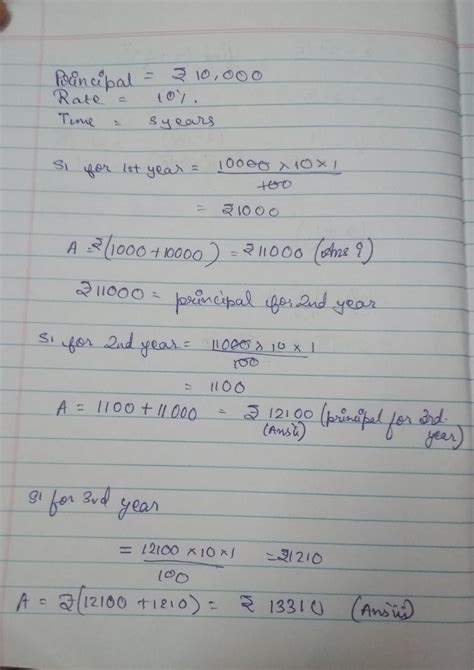 Principal = ₹10,000
Rate = 10%.
Time = 3years
SI for 1st year = 10000 × 10 × 1
100
= ₹1000
A = ₹(1000+10000) = ₹11000 (Ans i)
₹11000 = principal for 2nd year
SI for 2nd year = 11000 × 10 × 1
100
= 1100
A = 1100 + 11000 = ₹ 12100 (principal for 3rd
(Ansii) year)
SI for 3rd year
= 12100 × 10 × 1 = ₹1210
100
A = ₹(12100 + 1210) = ₹ 13310 (Ansiii)